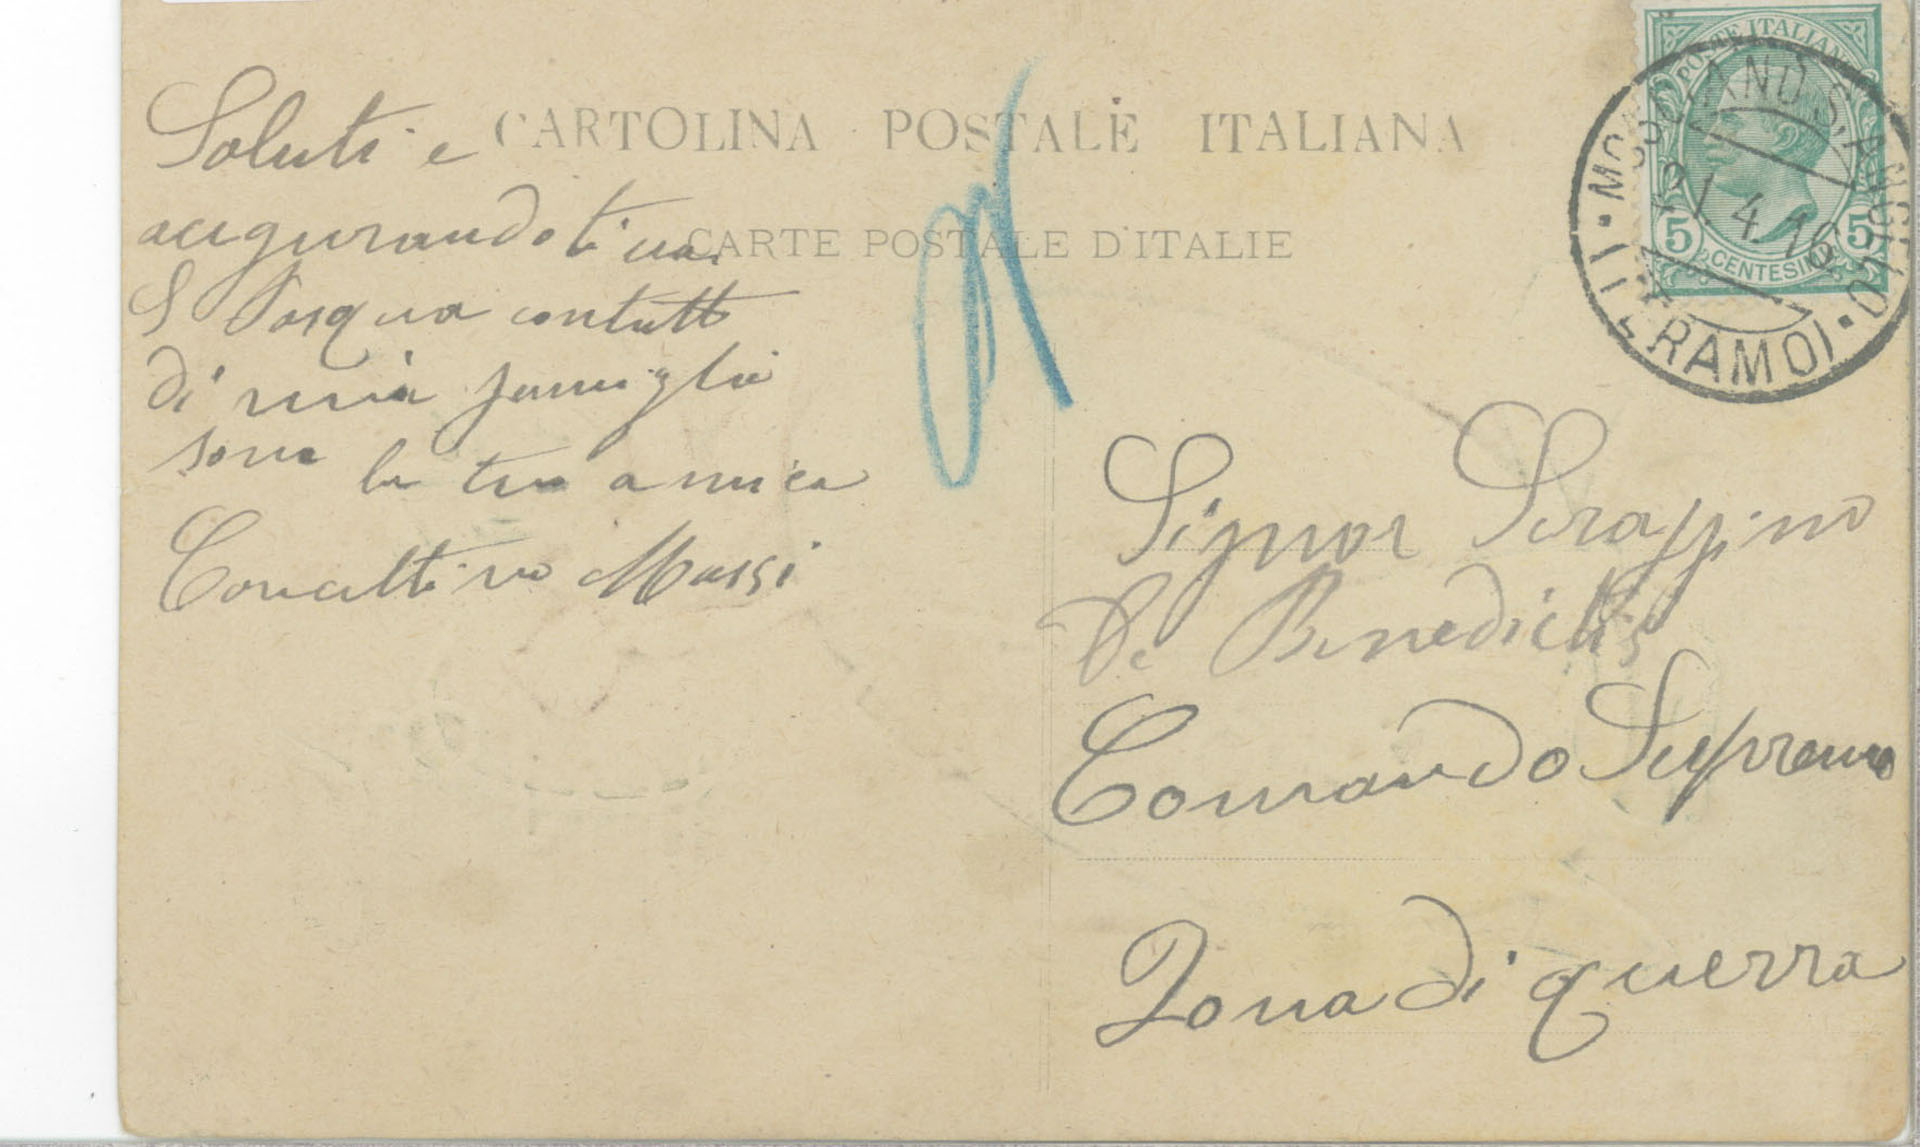 CARTOLINA POSTALE ITALIANA
CARTE POSTALE D'ITALIE
Saluti e
augurandoti una
S Pasqua contutti
di mia famiglia
sono la tua amica
Concettina Massi
POSTE ITALIANE
5 CENTESIMI 5
MOSCIANO S. ANGELO
21.4.16
(TERAMO)
Signor Seraffino
De Benedictis
Comando Supremo
Zona di guerra